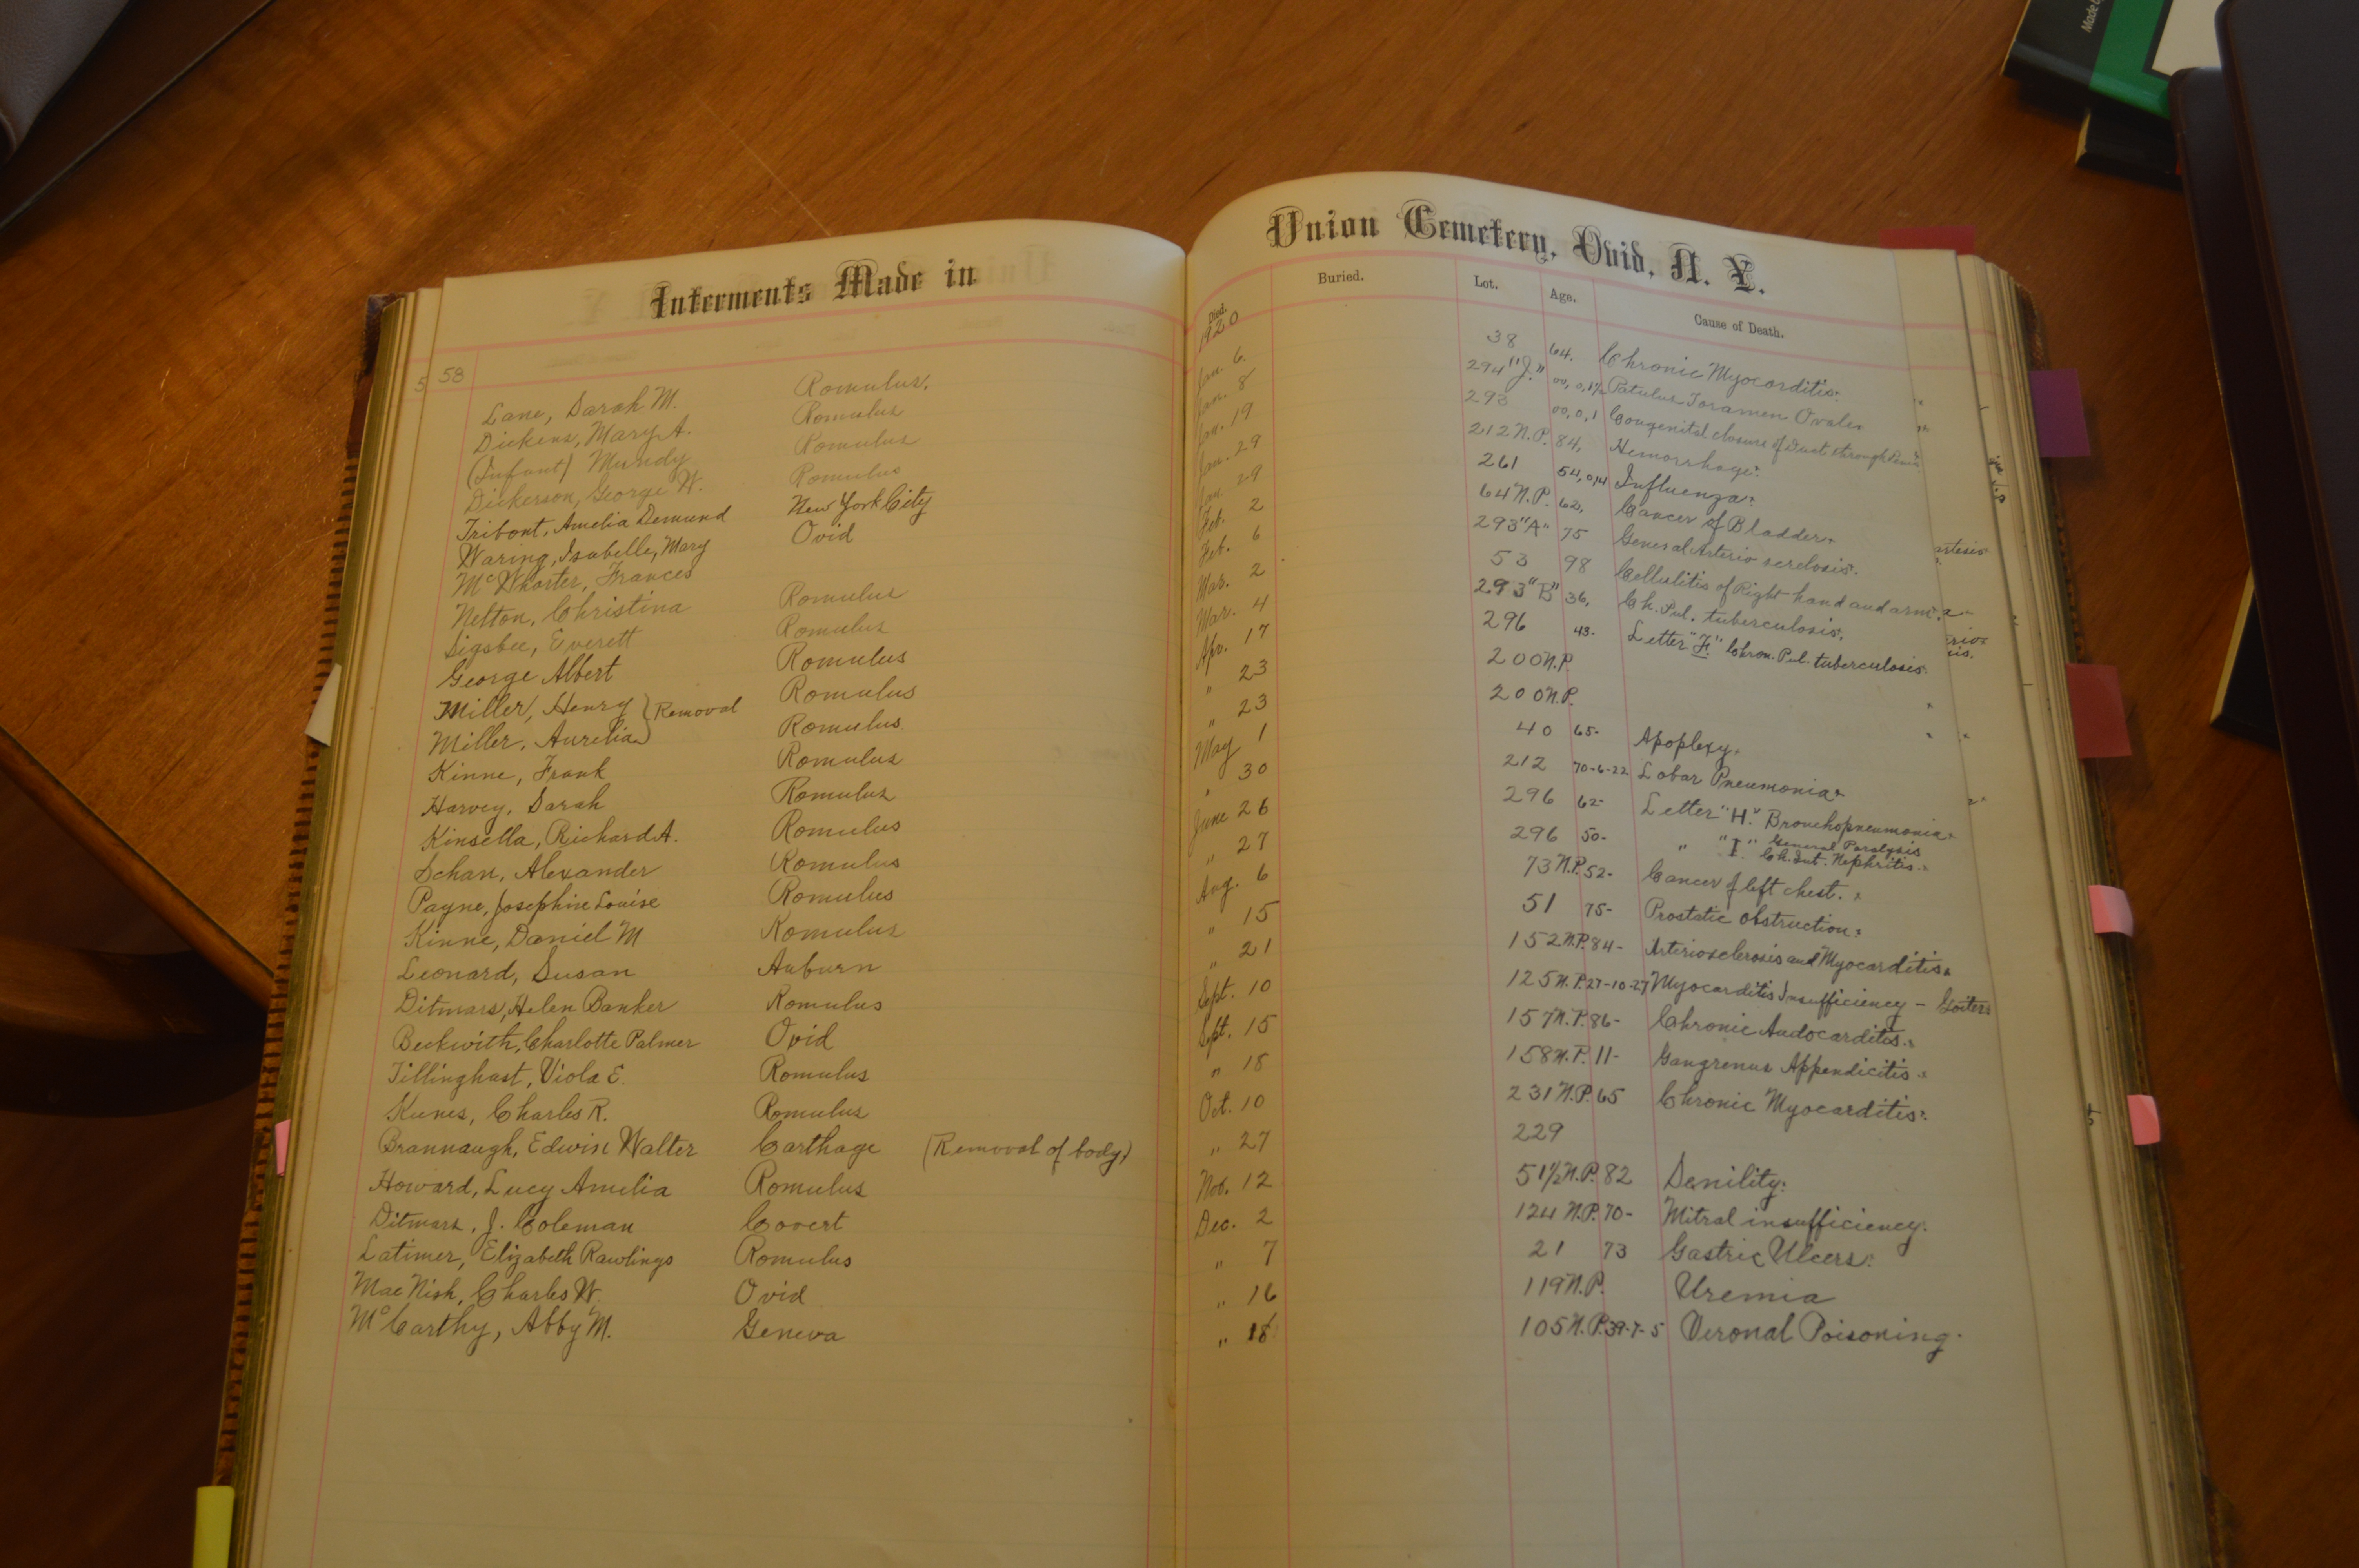 Interments Made in
58
Lane, Sarah M. Romulus.
Dickens, Mary A. Romulus
(Infant) Mundy Romulus
Dickerson, George W. Romulus
Tribont, Amelia Demund New York City
Waring, Isabelle, Mary Ovid
McWhorter, Frances
Nelton, Christina Romulus
Sigsbee, Everett Romulus
George Albert Romulus
Miller, Henry } Removal Romulus
Miller, Aurelia Romulus
Kinne, Frank Romulus
Harvey, Sarah Romulus
Kinsella, Richard A. Romulus
Schan, Alexander Romulus
Payne, Josephine Louise Romulus
Kinne, Daniel M Romulus
Leonard, Susan Auburn
Ditmars, Helen Banker Romulus
Beckwith, Charlotte Palmer Ovid
Tillinghast, Viola E. Romulus
Kunes, Charles R. Romulus
Brannaugh, Edwin Walter Carthage (Removal of body)
Howard, Lucy Amelia Romulus
Ditmars, J. Coleman Covert
Latimer, Elizabeth Rawlings Romulus
MacNish, Charles W. Ovid
McCarthy, Abby M. Geneva
Union Cemetery, Ovid, N. Y.
Died. Buried. Lot. Age. Cause of Death.
1920
Jan. 6 38 64. Chronic Myocarditis.
Jan. 8 294 "J." 00, 0, 1½ Patulus Foramen Ovale.
Jan. 19 293 00, 0, 1 Congenital closure of Duct
Jan. 29 212 N.P. 84, Hemorrhage.
Jan. 29 261 54, 0, 14 Influenza.
Feb. 2 64 N.P. 62, Cancer of Bladder.
Feb. 6 293 "A" 75 General Arterio serclosis.
Mar. 2 53 98 Cellulitis of Right hand and arm.
Mar. 4 293 "B" 36, Ch. Pul. tuberculosis.
Apr. 17 296 43- Letter "F." Chron. Pul. tuberculosis.
" 23 200 N.P.
" 23 200 N.P.
May 1 40 65- Apoplexy.
" 30 212 70-6-22 Lobar Pneumonia.
June 26 296 62- Letter "H." Bronchopneumonia.
" 27 296 50- " "I." General Paralysis
Ch. Int. Nephritis.
Aug. 6 73 N.P. 52- Cancer of left chest.
" 15 51 75- Prostatic obstruction.
" 21 152 N.P. 84- Arteriosclerosis and Myocarditis.
Sept. 10 125 N.P. 27-10-27 Myocarditis Insufficiency - Goiters
Sept. 15 157 N.P. 86- Chronic Audocarditis.
" 18 158 N.P. 11- Gangrenus Appendicitis.
Oct. 10 231 N.P. 65 Chronic Myocarditis.
" 27 229
Nov. 12 51½ N.P. 82 Senility.
Dec. 2 124 N.P. 70- Mitral insufficiency.
" 7 21 73 Gastric Ulcers.
" 16 119 N.P. Uremia
" 18 105 N.P. 39-7-5 Veronal Poisoning.